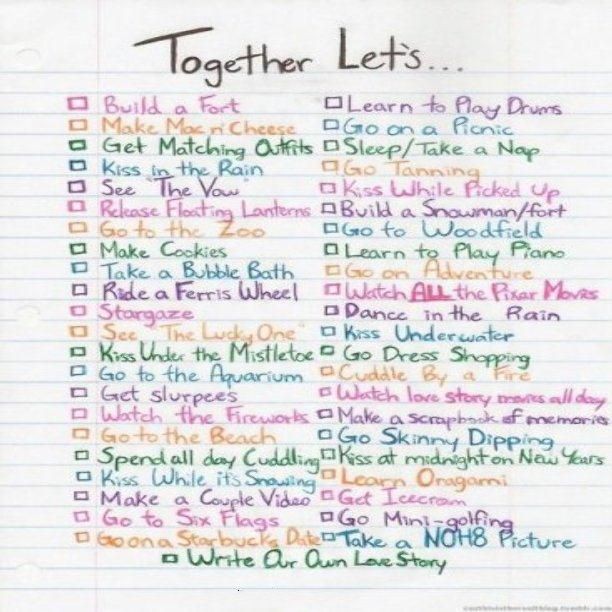 Together Let's...
Build a Fort
Make Mac n' Cheese
Get Matching Outfits
Kiss in the Rain
See "The Vow"
Release Floating Lanterns
Go to the Zoo
Make Cookies
Take a Bubble Bath
Ride a Ferris Wheel
Stargaze
See "The Lucky One"
Kiss Under the Mistletoe
Go to the Aquarium
Get slurpees
Watch the Fireworks
Go to the Beach
Spend all day Cuddling
Kiss While it's Snowing
Make a Couple Video
Go to Six Flags
Go on a Starbucks Date
Learn to Play Drums
Go on a Picnic
Sleep/Take a Nap
Go Tanning
Kiss While Picked Up
Build a Snowman/fort
Go to Woodfield
Learn to Play Piano
Go on Adventure
Watch ALL the Pixar Movies
Dance in the Rain
Kiss Underwater
Go Dress Shopping
Cuddle By a Fire
Watch love story movies all day
Make a scrapbook of memories
Go Skinny Dipping
Kiss at midnight on New Years
Learn Oragami
Get Icecream
Go Mini-golfing
Take a NOH8 Picture
Write Our Own Love Story